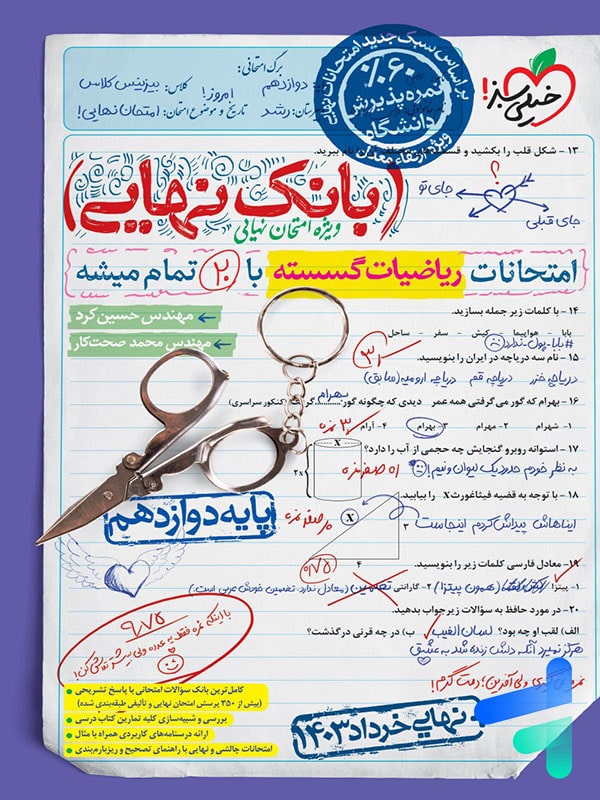 خیلی سبز!
براساس سبک جدید امتحانات نهایی
۶۰٪
نمره پذیرش
دانشگاه
ویژه ارتقاء معدل
برگ امتحانی:
دوازدهم
کلاس: بیزینس کلاس
امروز!
رشد
تاریخ و موضوع امتحان: امتحان نهایی!
۱۳ - شکل قلب را بکشید و
ببرید.
؟
جای تو
جای قبلی
(بانک نهایی)
ویژه امتحان نهایی
امتحانات ریاضیات گسسته با ۲۰ تمام میشه
مهندس حسین کرد
مهندس محمد صحت‌کار
۱۴ - با کلمات زیر جمله بسازید.
بابا - هواپیما - کیش - سفر - ساحل
#بابا_پول_ندارد
۱۵ - نام سه دریاچه در ایران را بنویسید.
دریاچه خزر دریاچه قم دریاچه ارومیه (سابق)
۱۶ - بهرام که گور می گرفتی همه عمر دیدی که چگونه گور بهرام گرفت (کنکور سراسری)
۱- شهرام ۲- مهرام ۳- بهرام ۴- آرام
۱۷ - استوانه روبرو گنجایش چه حجمی از آب را دارد؟
به نظر خودم حدود یک لیوان و نیم!
x
۲x
۱۸ - با توجه به قضیه فیثاغورث x را بیابید.
ایناهاش پیداش کردم اینجاست
x
۳
۴
پایه دوازدهم
۱۹ - معادل فارسی کلمات زیر را بنویسید.
۱- پیتزا (همون پیتزا) ۲- گارانتی تضمین (معادل ندارد. تضمین خودش عربی است.)
۲۰ - در مورد حافظ به سؤالات زیر جواب بدهید.
الف) لقب او چه بود؟ لسان الغیب ب) در چه قرنی درگذشت؟
هرگز نمیرد آنکه دلش زنده شد به عشق
۹/۷۵
با اینکه نمره فقط یه عدده ولی بیشتر تلاش کن!
کامل‌ترین بانک سؤالات امتحانی با پاسخ تشریحی
(بیش از ۳۵۰ پرسش امتحان نهایی و تألیفی طبقه‌بندی شده)
بررسی و شبیه‌سازی کلیه تمارین کتاب درسی
ارائه درسنامه‌های کاربردی همراه با مثال
امتحانات چالشی و نهایی با راهنمای تصحیح و ریزبارم‌بندی
+ نهایی خرداد ۱۴۰۳